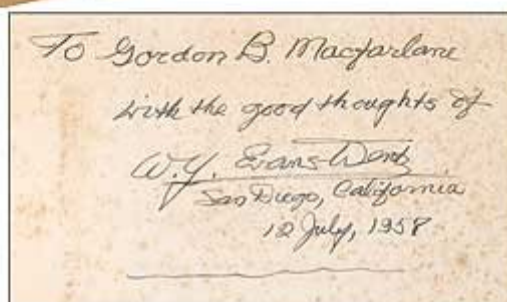 To Gordon B. Macfarlane
with the good thoughts of
W.Y. Evans-Wentz
San Diego, California
12 July, 1958